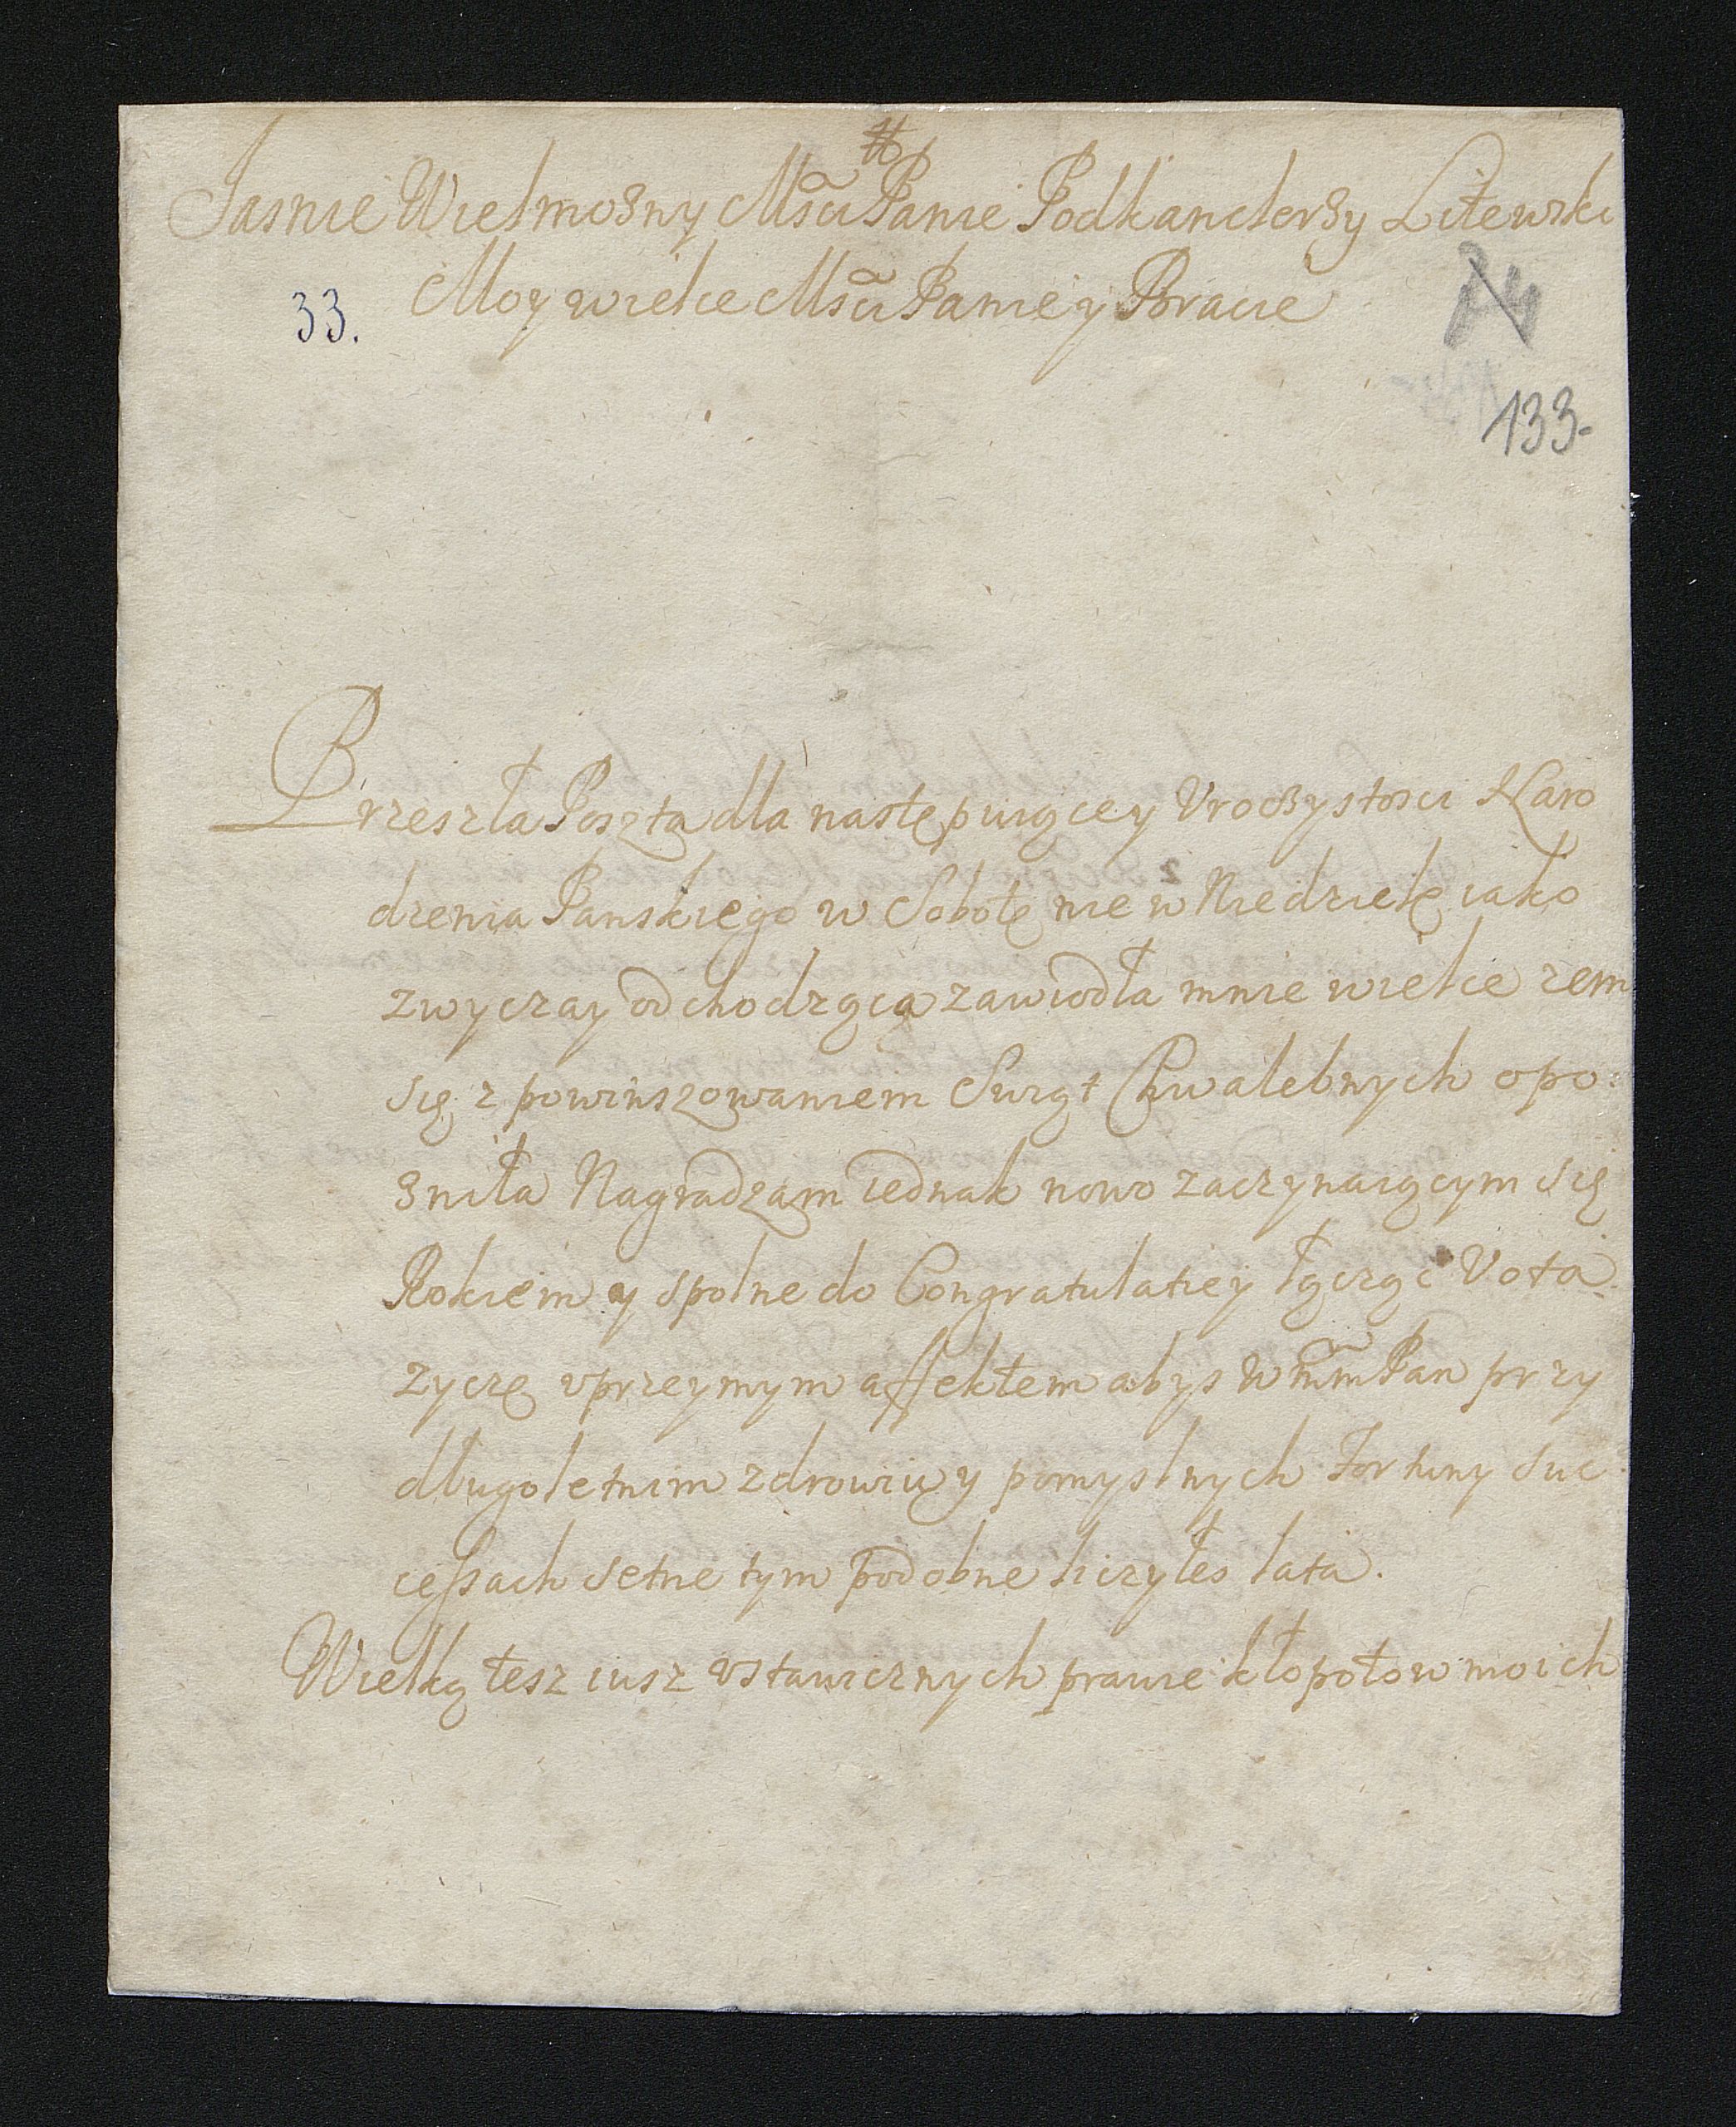 Jasnie Wielmozny Msci Panie Podkanclerzy Litewski
33. Moy wielce Msci Panie y Bracie
133.
Przeszła Poszta dla następuiącey Uroczystosci Naro
dzenia Panskiego w Sobotę nie w Niedzielę iako
zwyczay odchodząca zawiodła mnie wielce zem
się z powinszowaniem Swiąt Chwalebnych opo:
zniła Nagradzam iednak nowo zaczynaiącym się
Rokiem y spolne do Congratulatiey łącząc Vota
zyczę uprzeymym affektem abys WmmPan przy
długoletnim zdrowiu y pomyslnych Fortuny Suc
cessach setne tym podobne liczyłes lata.
Wielką tesz iusz ustawicznych prawie kłopotow moich